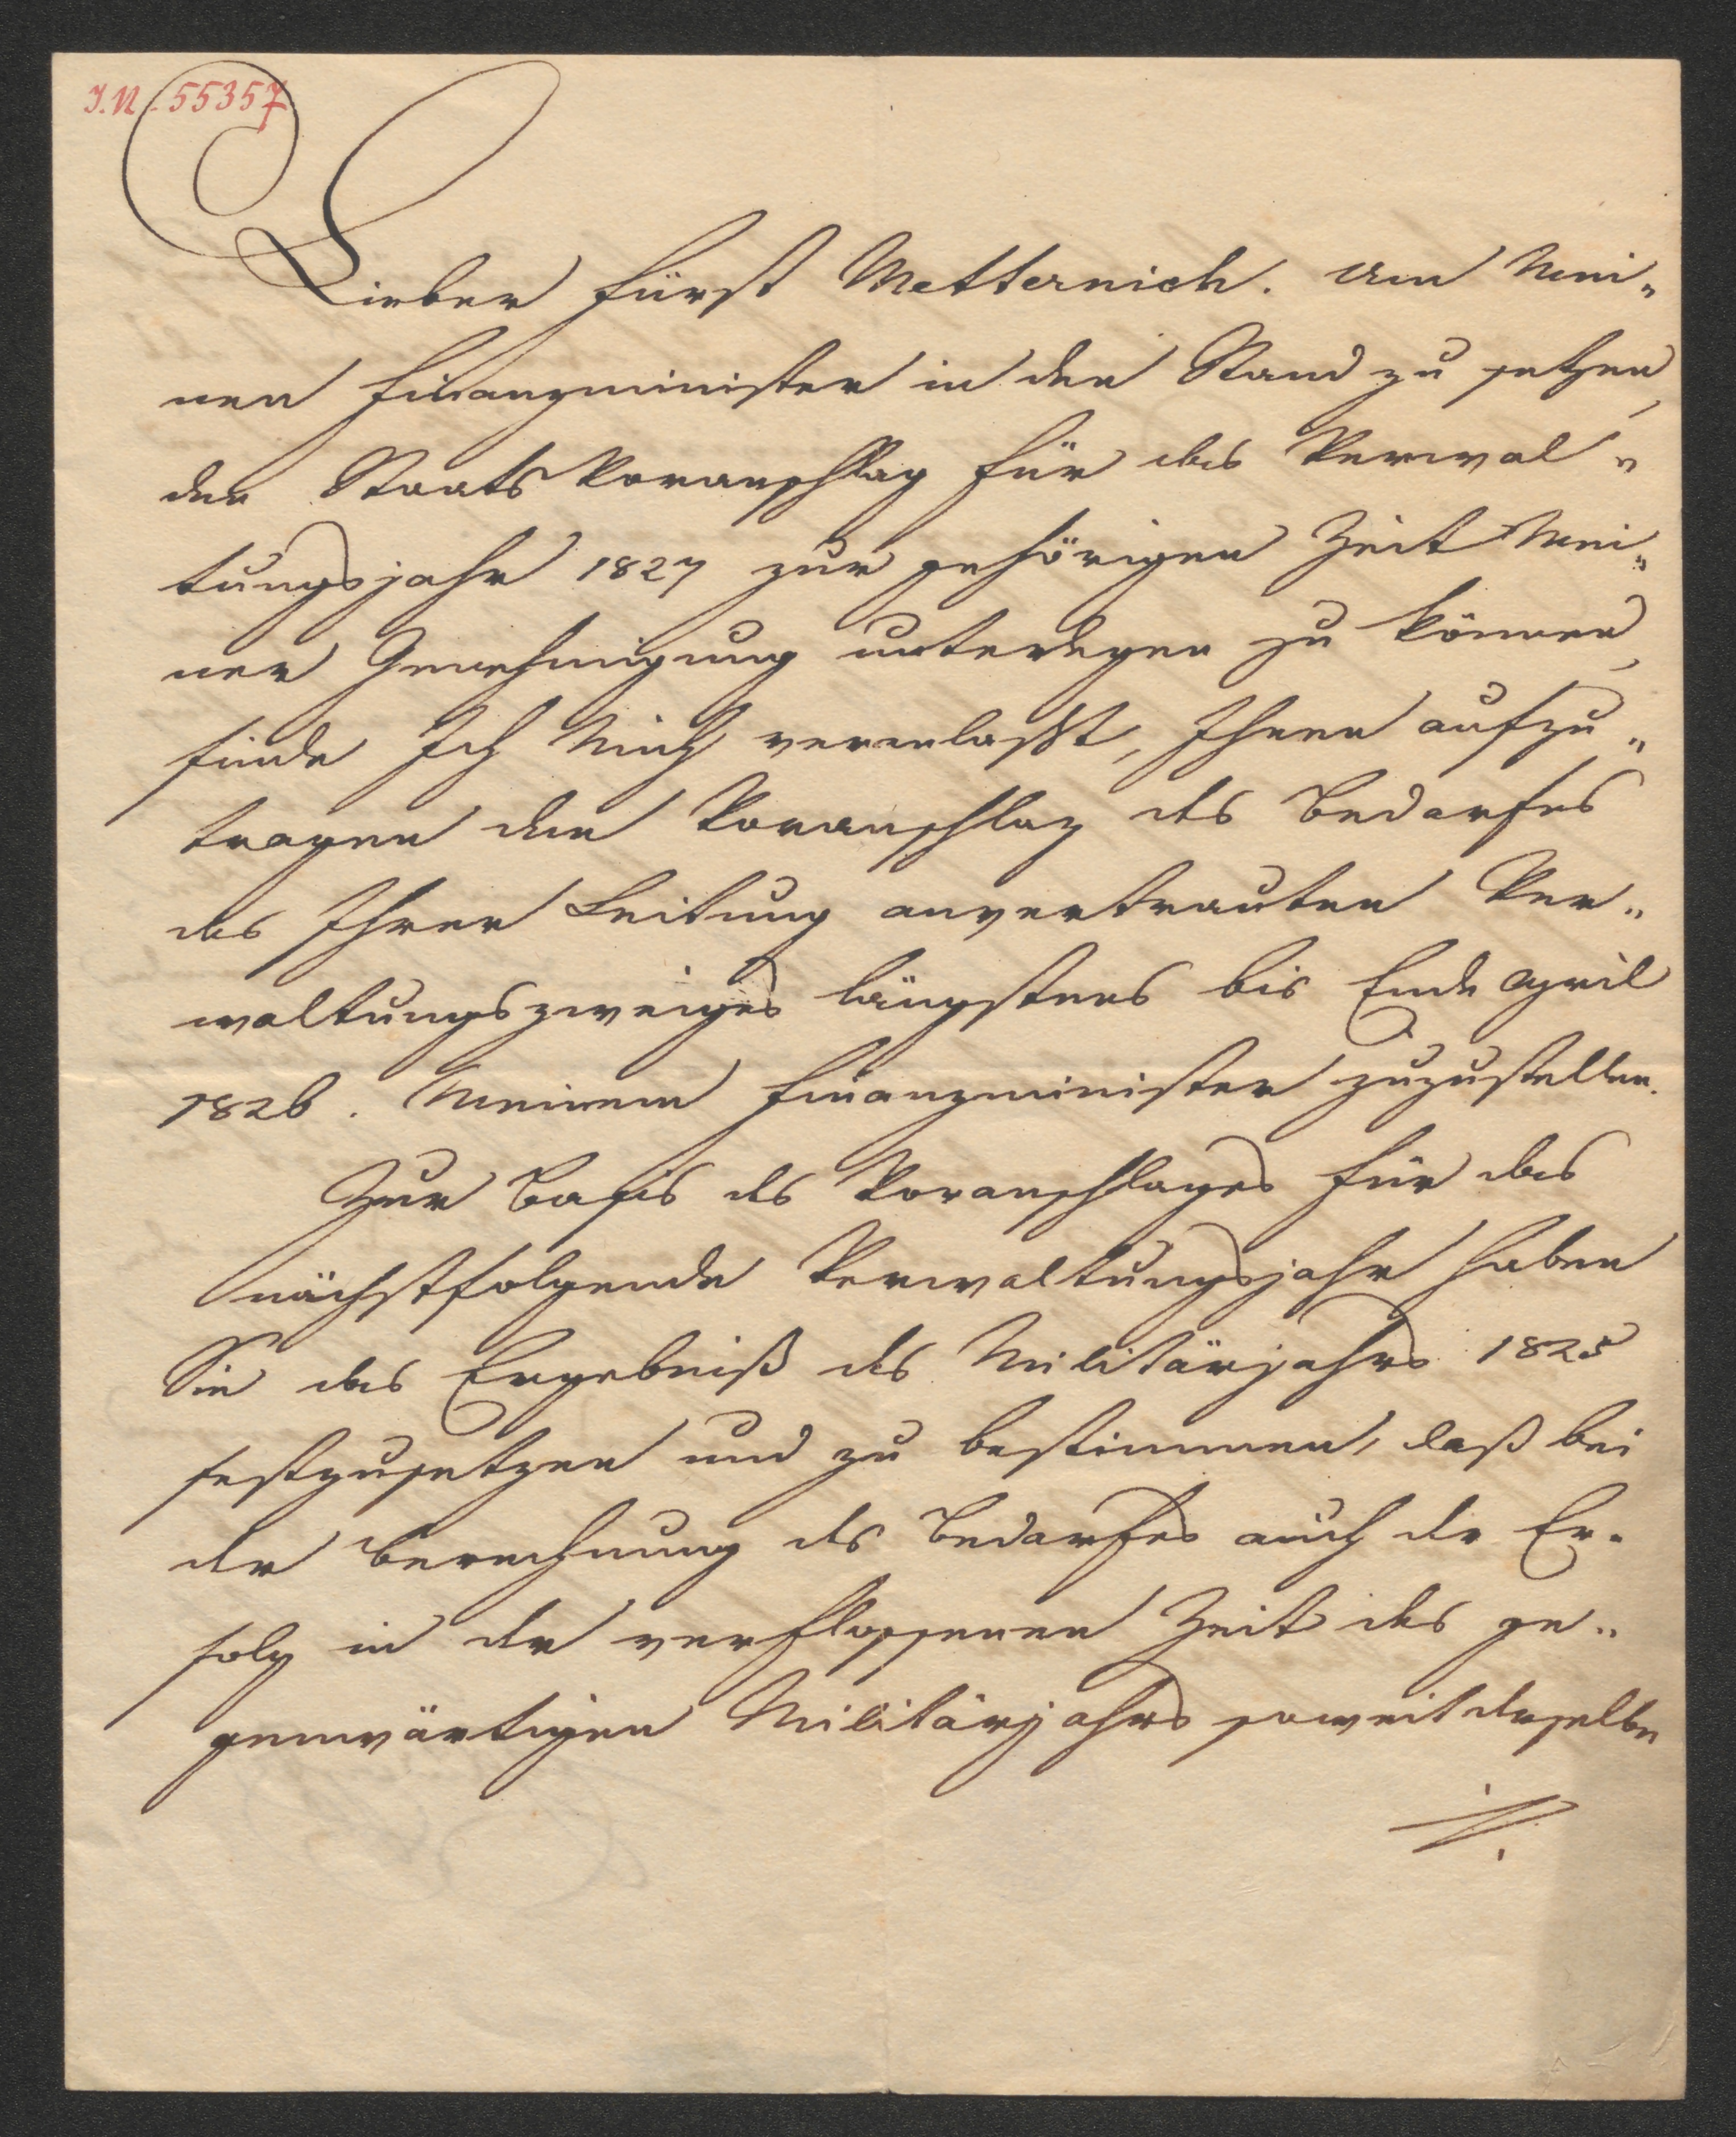 I.N. 55357
Lieber Fürst Metternich. Um Mei„
nen Finanzminister in den Stand zu setzen,
den Staats Voranschlag für das Verwal„
tungsjahr 1827 zur gehörigen Zeit Mei„
ner Genehmigung unterlegen zu können,
finde Ich Mich veranlaßt, Ihnen aufzu„
tragen den Voranschlag des Bedarfes
des Ihrer Leitung anvertrauten Ver„
waltungszweiges längstens bis Ende April
1826. Meinem Finanzminister zuzustellen.
Zur Basis des Voranschlages für das
nächstfolgende Verwaltungsjahr haben
Sie das Ergebniß des Militärjahrs 1825
festzusetzen und zu bestimmen, daß bei
der Berechnung des Bedarfes auch der Er„
folg in der verflossenen Zeit des ge„
genwärtigen Militärjahrs soweit derselbe
./.